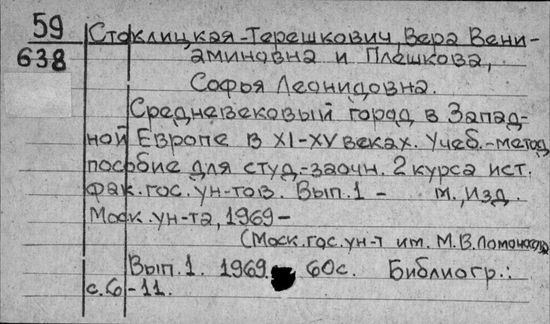 59
638
Стоклицкая-Терешкович, Вера Вени-
аминовна и Плешкова,
Софья Леонидовна.
Средневековый город в Запад-
ной Европе в XI-XV веках. Учеб.-метод.
пособие для студ-заочн. 2 курса ист.
фак. гос. ун-тов. Вып. 1 - М., Изд.
Моск. ун-та, 1969-
(Моск. гос. ун-т им. М.В. Ломоносова)
Вып. 1. 1969. 60 с. Библиогр.:
с. 6-11.